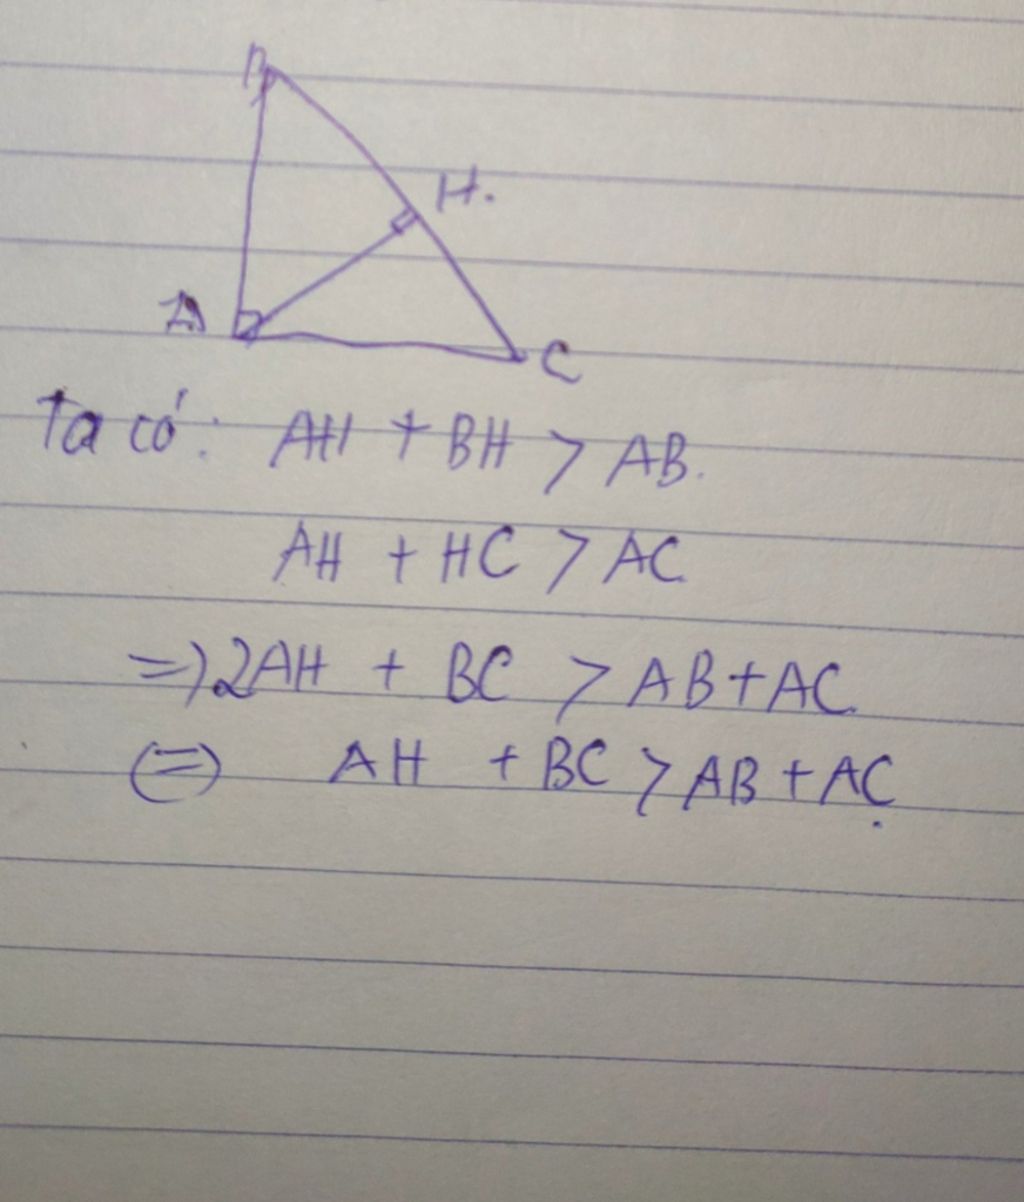 B
H.
A
C
Ta có: AH + BH > AB.
AH + HC > AC
=) 2AH + BC > AB + AC.
(=) AH + BC > AB + AC.